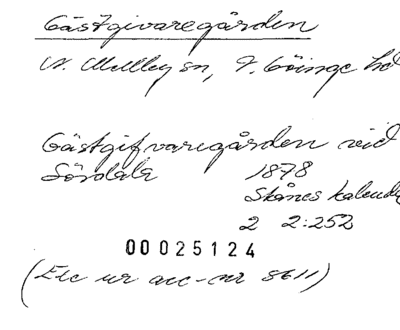 Gästgivaregården
N. Mellby sn, V. Göinge hd
Gästgifvaregården vid
Sösdala 1878
Skånes kalender
2 2:252
00025124
(Etc ur acc-nr 8611)